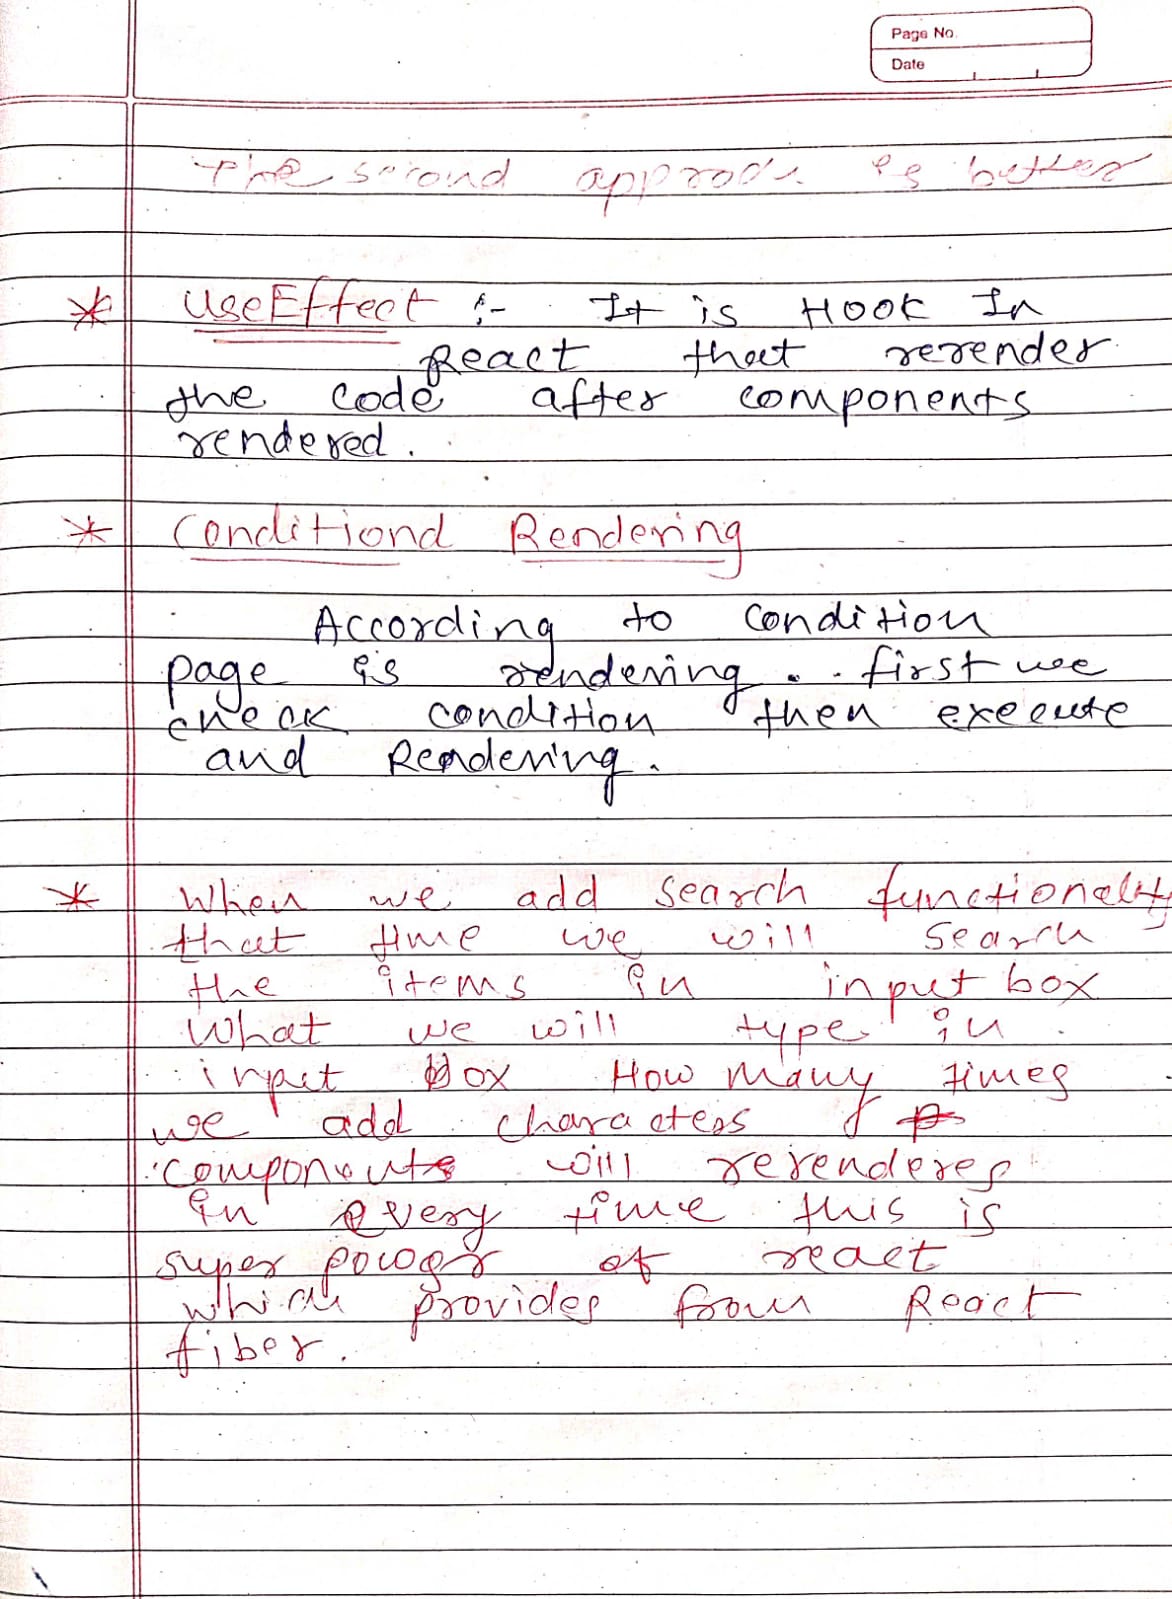 Page No.
Date
The second approac. is better
* UseEffect :- It is HOOK In
React that rerender
the code after components
rendered.
* Conditiond Rendering
According to condition
page is rendering. first we
check condition then execute
and Rendering.
* When we add search functionality
that time we will search
the items in input box
What we will type in
input Box How many times
we add characters
components will rerenderes
in every time this is
super power of react
which provides from React
fiber.